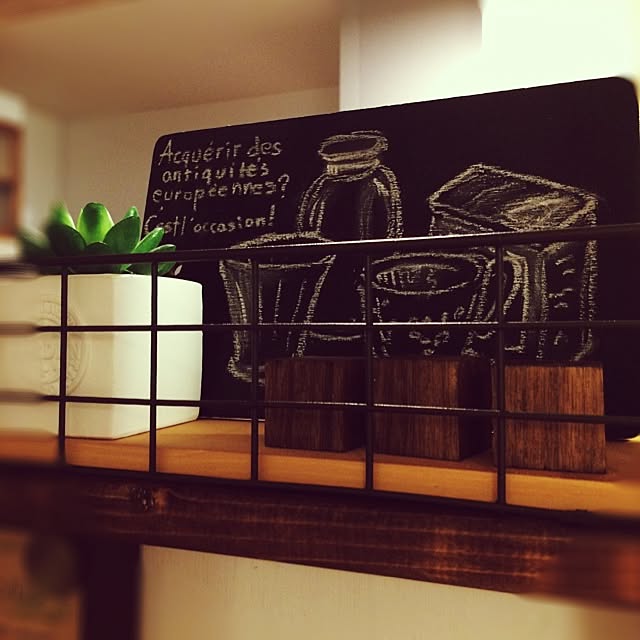 Acquérir des
antiquités
européennes?
C'est l'occasion!